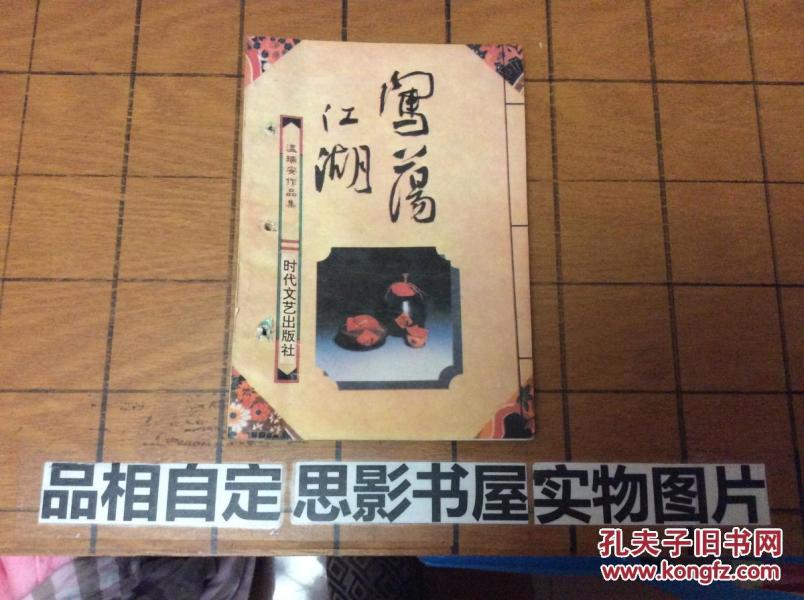 闖蕩
江湖
温瑞安作品集
时代文艺出版社
品相自定 思影书屋 实物图片
孔夫子旧书网
www.kongfz.com